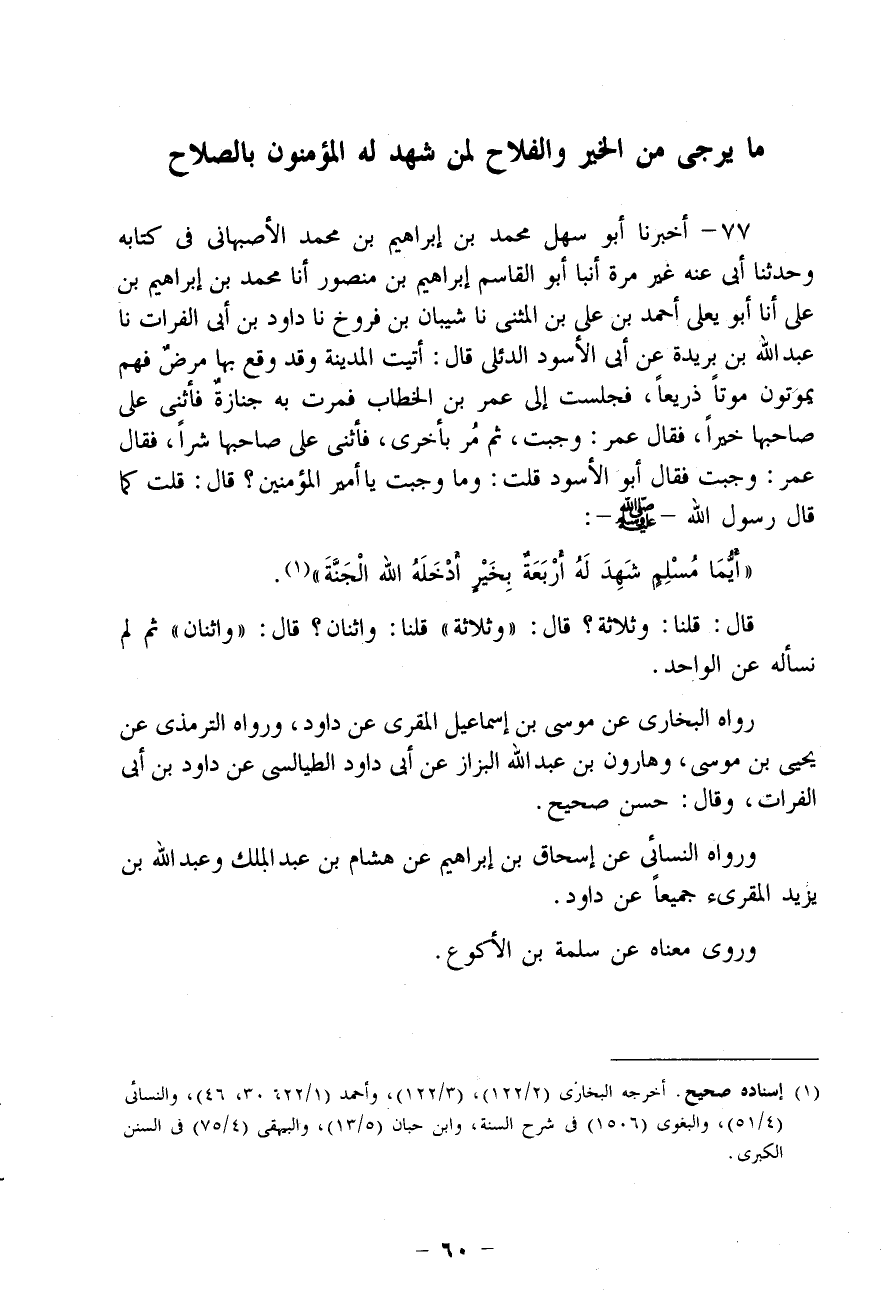 ما يرجى من الخير والفلاح لمن شهد له المؤمنون بالصلاح
٧٧ - أخبرنا أبو سهل محمد بن إبراهيم بن محمد الأصبهانى فى كتابه
وحدثنا أبى عنه غير مرة أنبا أبو القاسم إبراهيم بن منصور أنا محمد بن إبراهيم بن
على أنا أبو يعلى أحمد بن على بن المثنى نا شيبان بن فروخ نا داود بن أبى الفرات نا
عبدالله بن بريدة عن أبى الأسود الدئلى قال : أتيت المدينة وقد وقع بها مرضٌ فهم
يموَتون موتاً ذريعاً ، فجلست إلى عمر بن الخطاب فمرت به جنازةٌ فأثنى على
صاحبها خيراً ، فقال عمر : وجبت ، ثم مُر بأخرى ، فأثنى على صاحبها شراً ، فقال
عمر : وجبت فقال أبو الأسود قلت : وما وجبت ياأمير المؤمنين ؟ قال : قلت كما
قال رسول الله - ﷺ - :
« أَيُّمَا مُسْلِمٍ شَهِدَ لَهُ أَرْبَعَةٌ بِخَيْرٍ أَدْخَلَهُ الله الْجَنَّةَ »(١) .
قال : قلنا : وثلاثة ؟ قال : « وثلاثة » قلنا : واثنان ؟ قال : « واثنان » ثم لم
نسأله عن الواحد .
رواه البخارى عن موسى بن إسماعيل المقرى عن داود ، ورواه الترمذى عن
يحيى بن موسى ، وهارون بن عبدالله البزاز عن أبى داود الطيالسى عن داود بن أبى
الفرات ، وقال : حسن صحيح .
ورواه النسائى عن إسحاق بن إبراهيم عن هشام بن عبدالملك وعبدالله بن
يزيد المقرىء جميعاً عن داود .
وروى معناه عن سلمة بن الأكوع .
(١) إسناده صحيح . أخرجه البخارى (١٢٢/٢) ، (١٢٢/٣) ، وأحمد (٢٢/١، ٣٠، ٤٦) ، والنسائى
(٥١/٤) ، والبغوى (١٥٠٦) فى شرح السنة ، وابن حبان (١٣/٥) ، والبيهقى (٧٥/٤) فى السنن
الكبرى .
- ٦٠ -